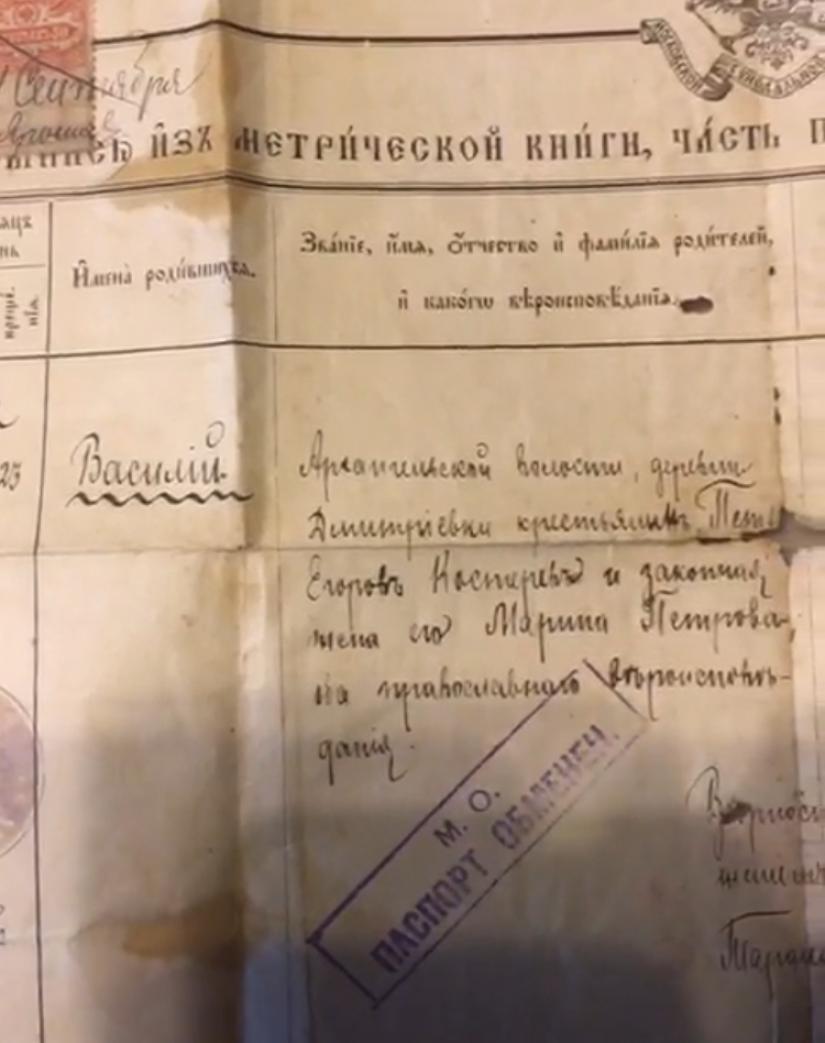 Сентября
МОСКОВСКОЙ СѴНОДАЛЬНОЙ
И҆ЗЪ МЕТРИ́ЧЕСКОЙ КНИ́ГИ, ЧА́СТЬ П
И҆мена̀ роди́вшихсѧ.
Зва́нїе, и҆́мѧ, ѻ҆́тчество и҆ фами́лїѧ роди́телей,
и҆ како́гѡ вѣроисповѣ́данїѧ.
23
Василій
Архангельской волости, деревни
Дмитріевки крестьянинъ
Егоровъ Костыревъ и законная
жена его Марина Петрова-
на православнаго вѣроисповѣ-
данія.
М. О.
ПАСПОРТ ОБМЕНЕН.